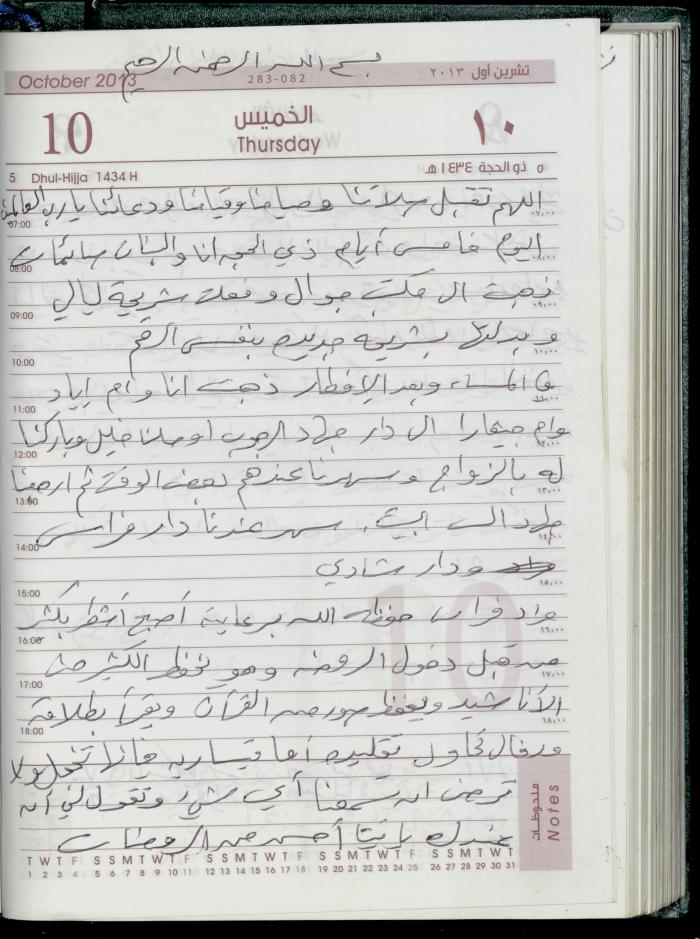 بسم الله الرحمن الرحيم
October 2013
283-082
تشرين أول ٢٠١٣
10
الخميس
Thursday
١٠
5 Dhul-Hijja 1434 H
٥ ذو الحجة ١٤٣٤ هـ
اللهم تقبل صلاتنا وصيامنا وقيامنا ودعائنا يا رب العالمين
07:00 ٠٧:٠٠
اليوم خامس أيام ذي الحجه انا والبنات صائمات
08:00 ٠٨:٠٠
ذهبت الى مكتب جوال وفعلت شريحة ليالي
09:00 ٠٩:٠٠
وبدلتها بشريحه جديده بنفس الرقم
10:00 ١٠:٠٠
المساء وبعد الإفطار ذهبت انا وام اياد
11:00 ١١:٠٠
وام جيفارا الى دار جهاد اوصلنا خليل وباركنا
12:00 ١٢:٠٠
له بالزواج وسهرنا عندهم بعض الوقت ثم ارجعنا
13:00 ١٣:٠٠
جهاد الى البيت. سهر عندنا دار فراس
14:00 ١٤:٠٠
ودار شادي
15:00 ١٥:٠٠
فراس حفظه الله برعايته أصبح أشطر بكثير
16:00 ١٦:٠٠
من قبل دخول الروضه وهو يحفظ الكثير من
17:00 ١٧:٠٠
الأناشيد ويحفظ سور من القرآن ويقرأ بطلاقه
18:00 ١٨:٠٠
تحاول تقليده أما قيساريه فإنها تخجل ولا
ترضى ان تسمعنا أي شيء وتقول لي انه
عندك يا تيتا أحسن من الروضات
ملاحظات
Notes
T W T F S S M T W T F S S M T W T F S S M T W T F S S M T W T
1 2 3 4 5 6 7 8 9 10 11 12 13 14 15 16 17 18 19 20 21 22 23 24 25 26 27 28 29 30 31